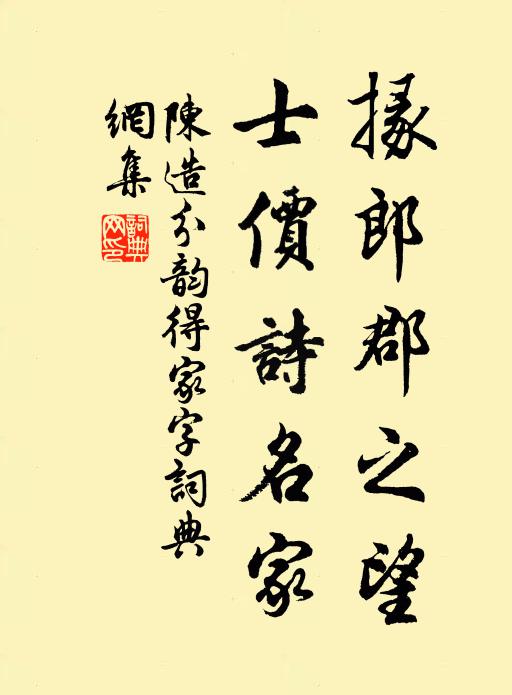 掾郎郡之望
士價詩名家
陳造分韵得家字詞典
網集
詞典
网印